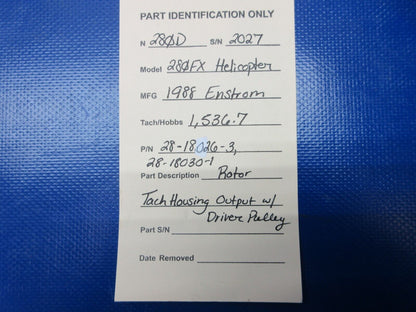 PART IDENTIFICATION ONLY
N 28ØD S/N 2027
Model 28ØFX Helicopter
MFG 1988 Enstrom
Tach/Hobbs 1,536.7
P/N 28-18026-3,
28-18030-1
Part Description Rotor
Tach Housing Output w/
Driver Pulley
Part S/N
Date Removed